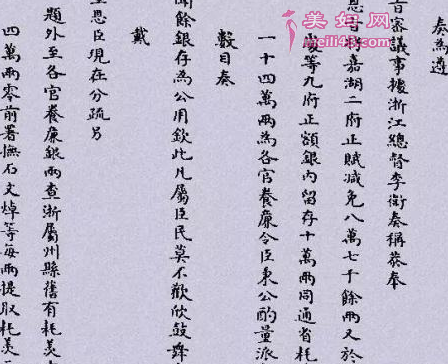 奏為遵
旨審議事據浙江總督李衛奏稱荷奉
恩旨將嘉湖二府正賦減免八萬七千餘兩又於
等九府正額銀內留存十萬兩同通省耗
一十四萬兩為各官養廉令臣秉公酌量派
數目奏
聞餘銀存為公用欽此凡屬臣民莫不歡欣鼓舞
戴
至思臣現在分疏另
題外至各官養廉銀兩查浙屬州縣舊有耗羨
四萬兩零前署撫石文焯等每兩提取耗羨
美妇网
meili43.com